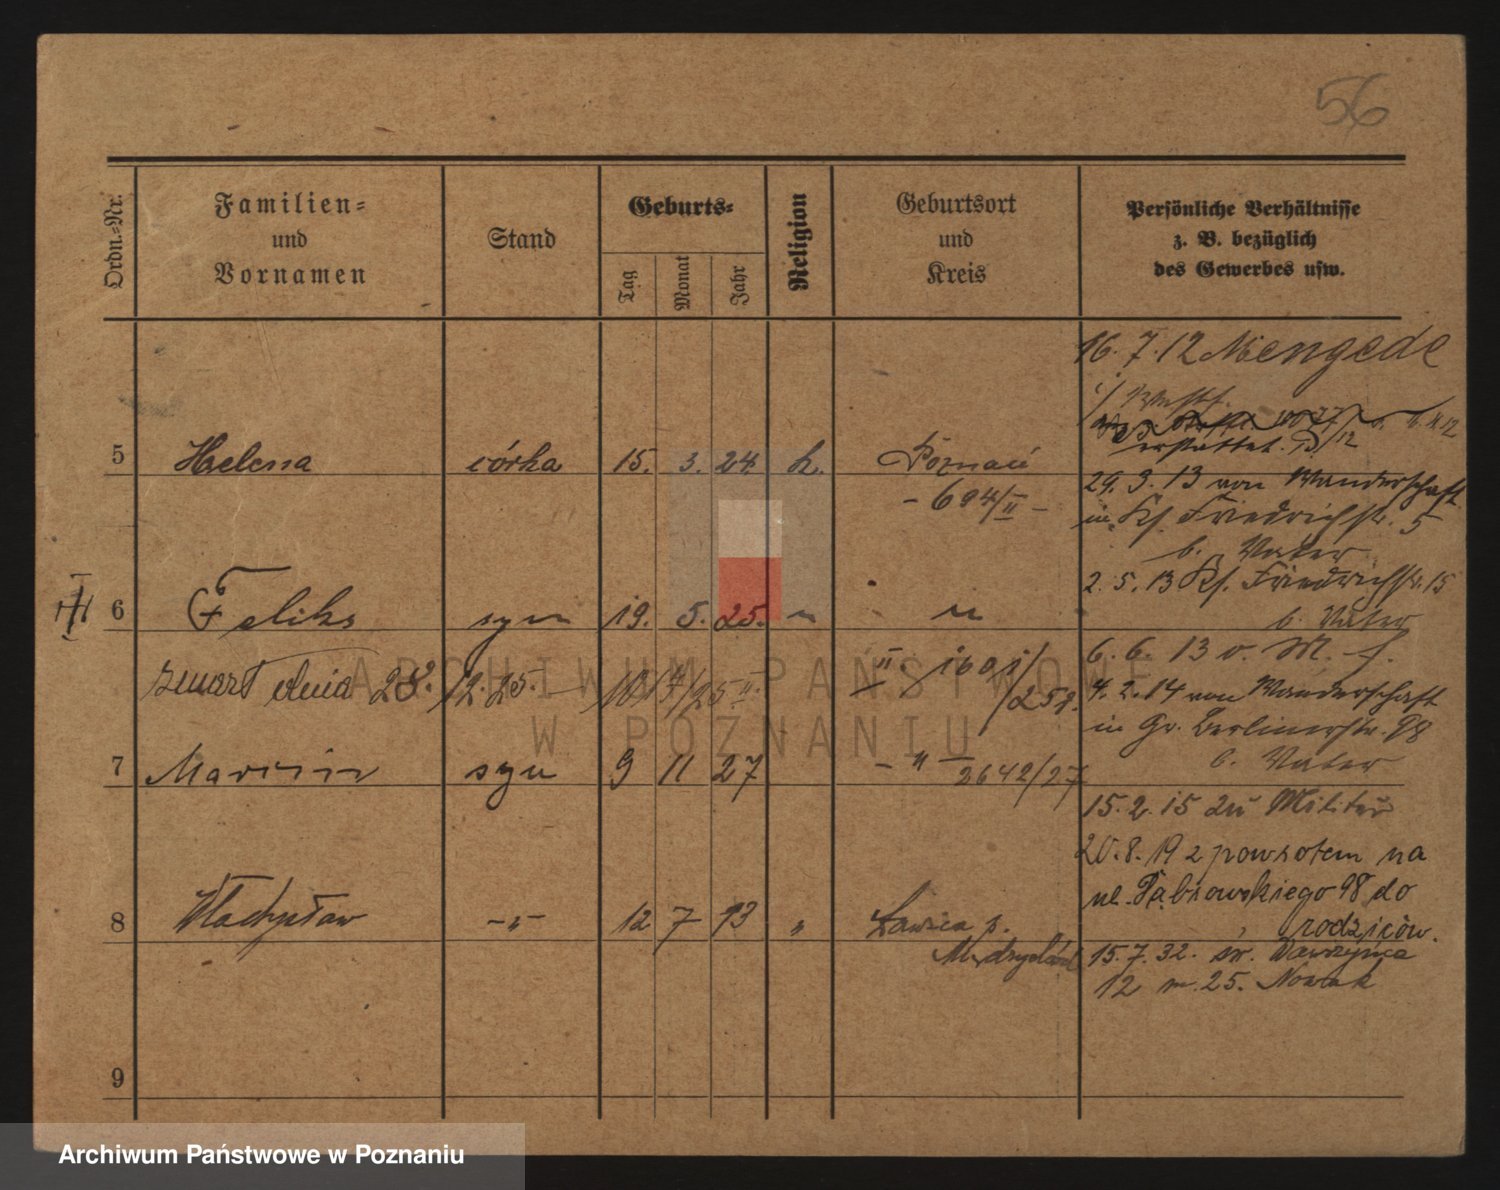 56
Ordn.-Nr.
Familien-
und
Vornamen
Stand
Geburts-
Tag
Monat
Jahr
Religion
Geburtsort
und
Kreis
Persönliche Verhältnisse
z. B. bezüglich
des Gewerbes usw.
16. 7. 12 Mengede
i/ Westf.
5 Helena córka 15. 3. 24 k. Poznań
- 694/II -
29. 3. 13 von Wanderschaft
in Kl. Friedrichstr. 5
b. Vater
2. 5. 13 Kl. Friedrichstr. 15
b. Vater
6 Feliks syn 19. 5. 25. " "
6. 6. 13 v. M. f.
zmarł dnia 28. 12. 25.
II. 1601/258.
4. 2. 14 von Wanderschaft
in Gr. Berlinerstr. 98
b. Vater
7 Marcin syn 9 11 27 - " -
2642/27
15. 2. 15 zu Militär
20. 8. 19 z powrotem na
ul. Dąbrowskiego 98 do
rodziców.
8 Władysław -"- 12 7 13 " Ławica p.
15. 7. 32. św. Wawrzyńca
12 m. 25. Nowak
9
ARCHIWUM PAŃSTWOWE
W POZNANIU
Archiwum Państwowe w Poznaniu